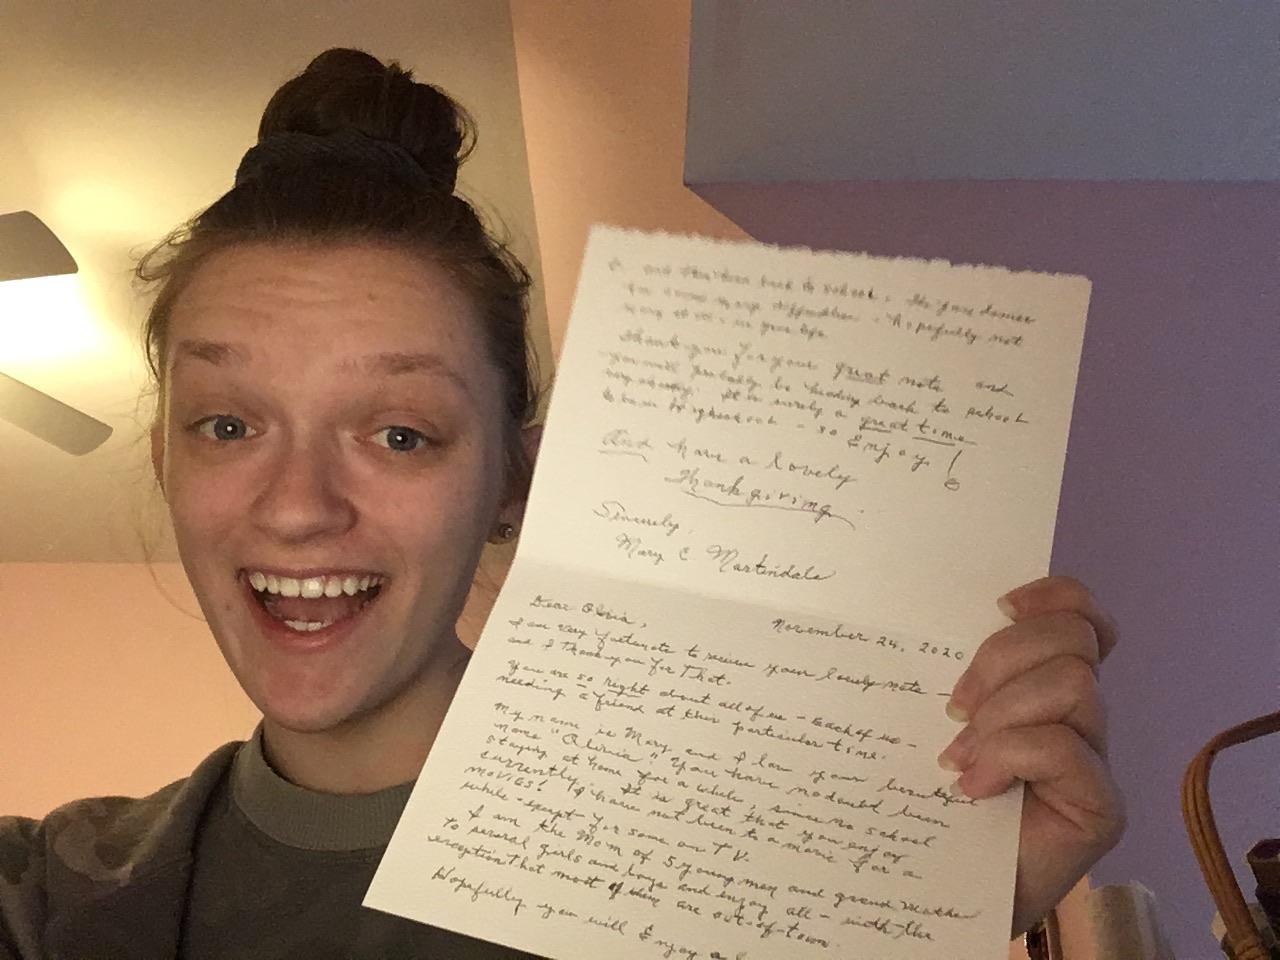 and then been back to school. The year
for many difficulties. Hopefully not
many
Thank you for your great note and
you will probably be heading back to school
very shortly. It is surely a great time
to be in highschool - so Enjoy!
And have a lovely
Thanksgiving.
Sincerely,
Mary C. Martindale
November 24, 2020
Dear Olivia,
I am very fortunate to receive your lovely note -
and I thank you for that.
You are so right about all of us - Each of us -
needing a friend at this particular time.
My name is Mary and I love your beautiful
name "Olivia." You have no doubt been
staying at home for a while, since no school
currently. It is great that you enjoy
MOVIES! I have not been to a movie for a
while - except for some on TV.
I am the Mom of 5 young men and grandmother
to several girls and boys and enjoy all - with the
exception that most of them are out-of-town.
Hopefully you will Enjoy a